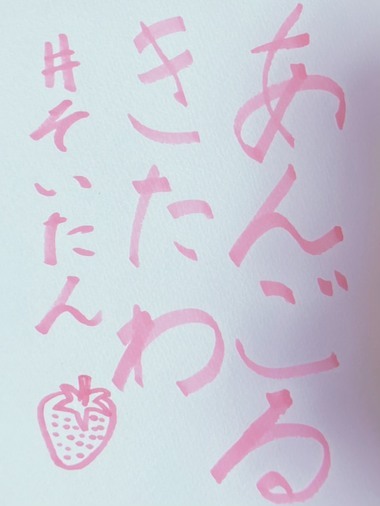 あんごる
きたわ
#そいたん